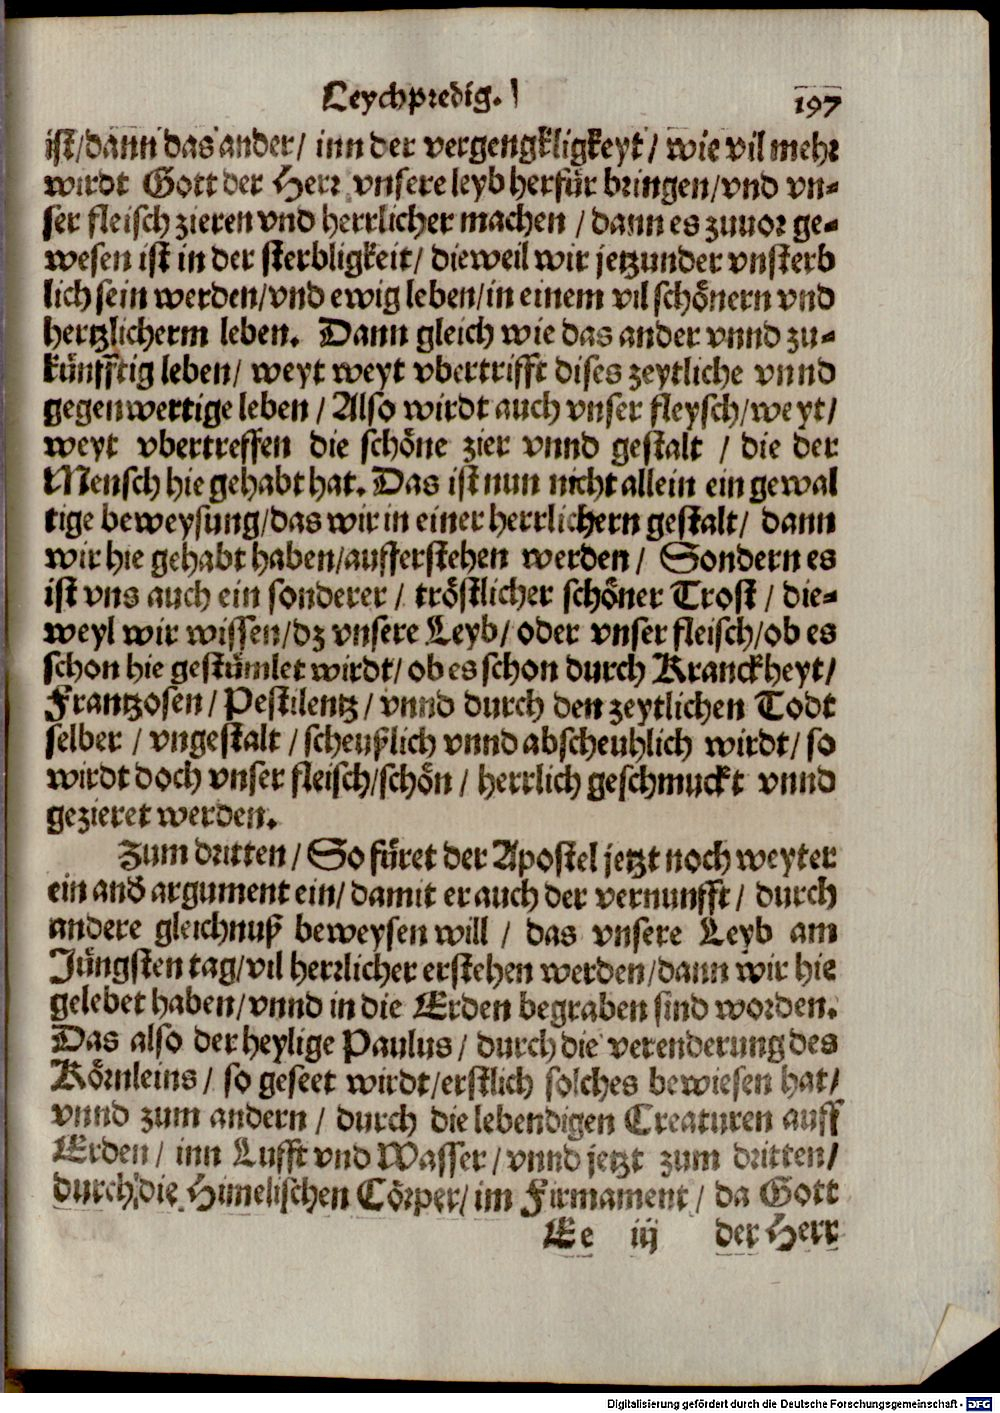 Leychpredig. 197
ist/dann das ander/ inn der vergengkligkeyt/ wie vil mehr
wirdt Gott der Herr vnsere leyb herfür bringen/vnd vn-
ser fleisch zieren vnd herrlicher machen / dann es zuuor ge-
wesen ist in der sterbligkeit/ dieweil wir jetzunder vnsterb
lich sein werden/vnd ewig leben/in einem vil schönern vnd
hertzlicherm leben. Dann gleich wie das ander vnnd zu-
künfftig leben/ weyt weyt vbertrifft dises zeytliche vnnd
gegenwertige leben / Also wirdt auch vnser fleysch/weyt/
weyt vbertreffen die schöne zier vnnd gestalt / die der
Mensch hie gehabt hat. Das ist nun nicht allein ein gewal
tige beweysung/das wir in einer herrlichern gestalt/ dann
wir hie gehabt haben/aufferstehen werden / Sondern es
ist vns auch ein sonderer / tröstlicher schöner Trost / die-
weyl wir wissen/dz vnsere Leyb/ oder vnser fleisch/ob es
schon hie gestümlet wirdt/ ob es schon durch Kranckheyt/
Frantzosen / Pestilentz / vnnd durch den zeytlichen Todt
selber / vngestalt / scheußlich vnnd abscheuhlich wirdt/ so
wirdt doch vnser fleisch/schön / herrlich geschmuckt vnnd
gezieret werden.
Zum dritten / So füret der Apostel jetzt noch weyter
ein and argument ein/ damit er auch der vernunfft / durch
andere gleichnuß beweysen will / das vnsere Leyb am
Jüngsten tag/vil herrlicher erstehen werden/dann wir hie
gelebet haben/vnnd in die Erden begraben sind worden.
Das also der heylige Paulus / durch die verenderung des
Körnleins / so geseet wirdt/erstlich solches bewiesen hat/
vnnd zum andern / durch die lebendigen Creaturen auff
Erden / inn Lufft vnd Wasser / vnnd jetzt zum dritten/
durch die Himelischen Cörper/ im Firmament / da Gott
Ee iij der Herr
Digitalisierung gefördert durch die Deutsche Forschungsgemeinschaft - DFG